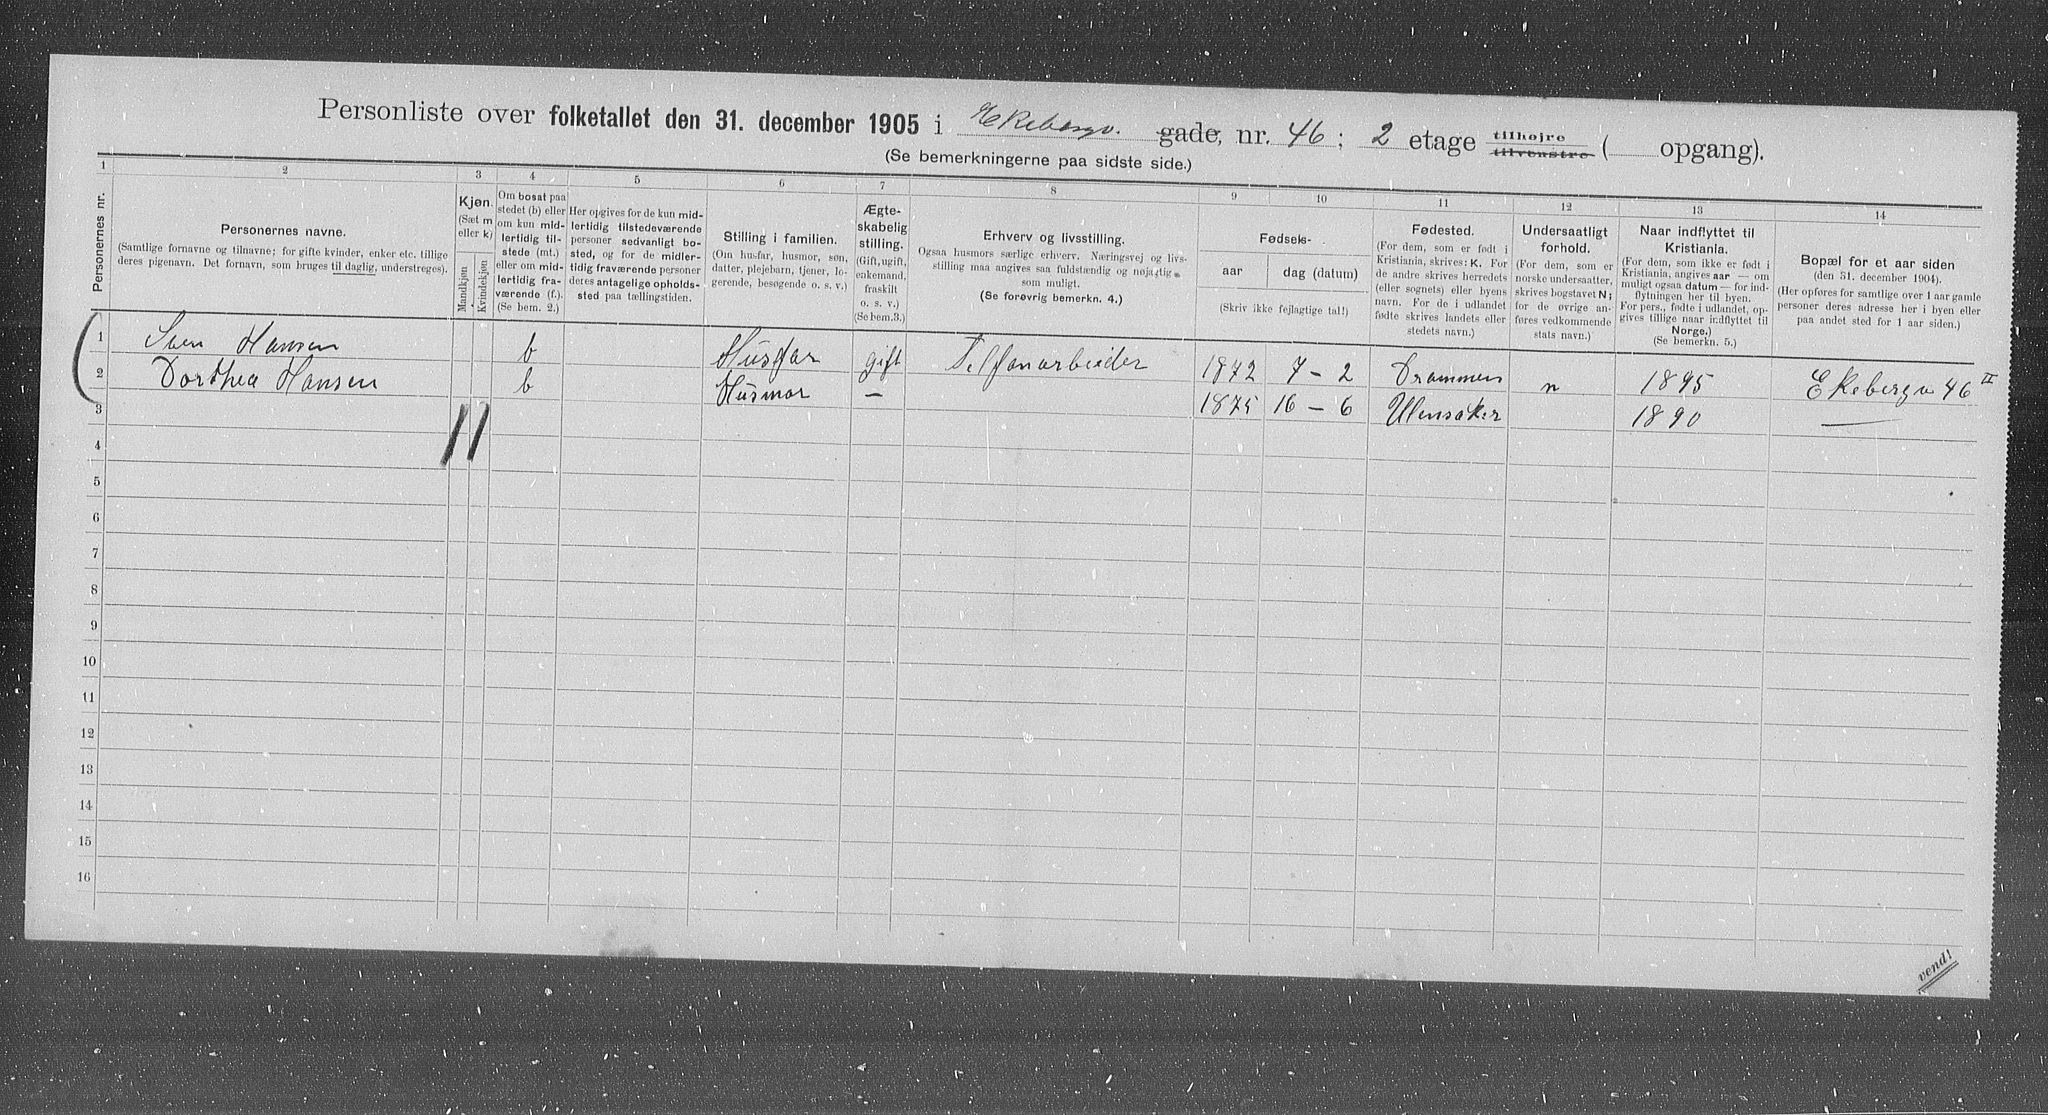 Personliste over folketallet den 31. december 1905 i Ekebergv. gade, nr. 46; 2 etage tilhøjre tilvenstre ( opgang).
(Se bemerkningerne paa sidste side.)
1 2 3 4 5 6 7 8 9 10 11 12 13 14
Personernes nr.
Personernes navne.
(Samtlige fornavne og tilnavne; for gifte kvinder, enker etc. tillige
deres pigenavn. Det fornavn, som bruges til daglig, understreges).
Kjøn.
(Sæt m
eller k)
Mandkjøn
Kvindekjøn
Om bosat paa
stedet (b) eller
om kun mid-
lertidig til-
stede (mt.)
eller om mid-
lertidig fra-
værende (f.).
(Se bem. 2.)
Her opgives for de kun mid-
lertidig tilstedeværende
personer sedvanligt bo-
sted, og for de midler-
tidig fraværende personer
deres antagelige opholds-
sted paa tællingstiden.
Stilling i familien.
(Om husfar, husmor, søn,
datter, plejebarn, tjener, lo-
gerende, besøgende o. s. v.)
Ægte-
skabelig
stilling.
(Gift, ugift,
enkemand,
fraskilt
o. s. v.)
(Se bem. 3.)
Erhverv og livsstilling.
Ogsaa husmors særlige erhverv. Næringsvej og livs-
stilling maa angives saa fuldstændig og nøjagtig
som muligt.
(Se forøvrig bemerkn. 4.)
Fødsels-
aar
dag (datum)
(Skriv ikke fejlagtige tal!)
Fødested.
(For dem, som er født i
Kristiania, skrives: K. For
de andre skrives herredets
(eller sognets) eller byens
navn. For de i udlandet
fødte skrives landets eller
stedets navn.)
Undersaatligt
forhold.
(For dem, som er
norske undersaatter,
skrives bogstavet N;
for de øvrige an-
føres vedkommende
stats navn.)
Naar indflyttet til
Kristiania.
(For dem, som ikke er født i
Kristiania, angives aar — om
muligt ogsaa datum — for ind-
flytningen her til byen.
For pers., fødte i udlandet, op-
gives tillige naar indflyttet til
Norge.)
(Se bemerkn. 5.)
Bopæl for et aar siden
(den 31. december 1904).
(Her opføres for samtlige over 1 aar gamle
personer deres adresse her i byen eller
paa andet sted for 1 aar siden.)
1 Sven Hansen b Husfar gift Telfonarbeider 1872 7 - 2 Drammen n 1895 Ekebergv 46 II
2 Dorthea Hansen b Husmor — 1875 16 - 6 Ulensaker 1890 —
3
4
5
6
7
8
9
10
11
12
13
14
15
16
vend!